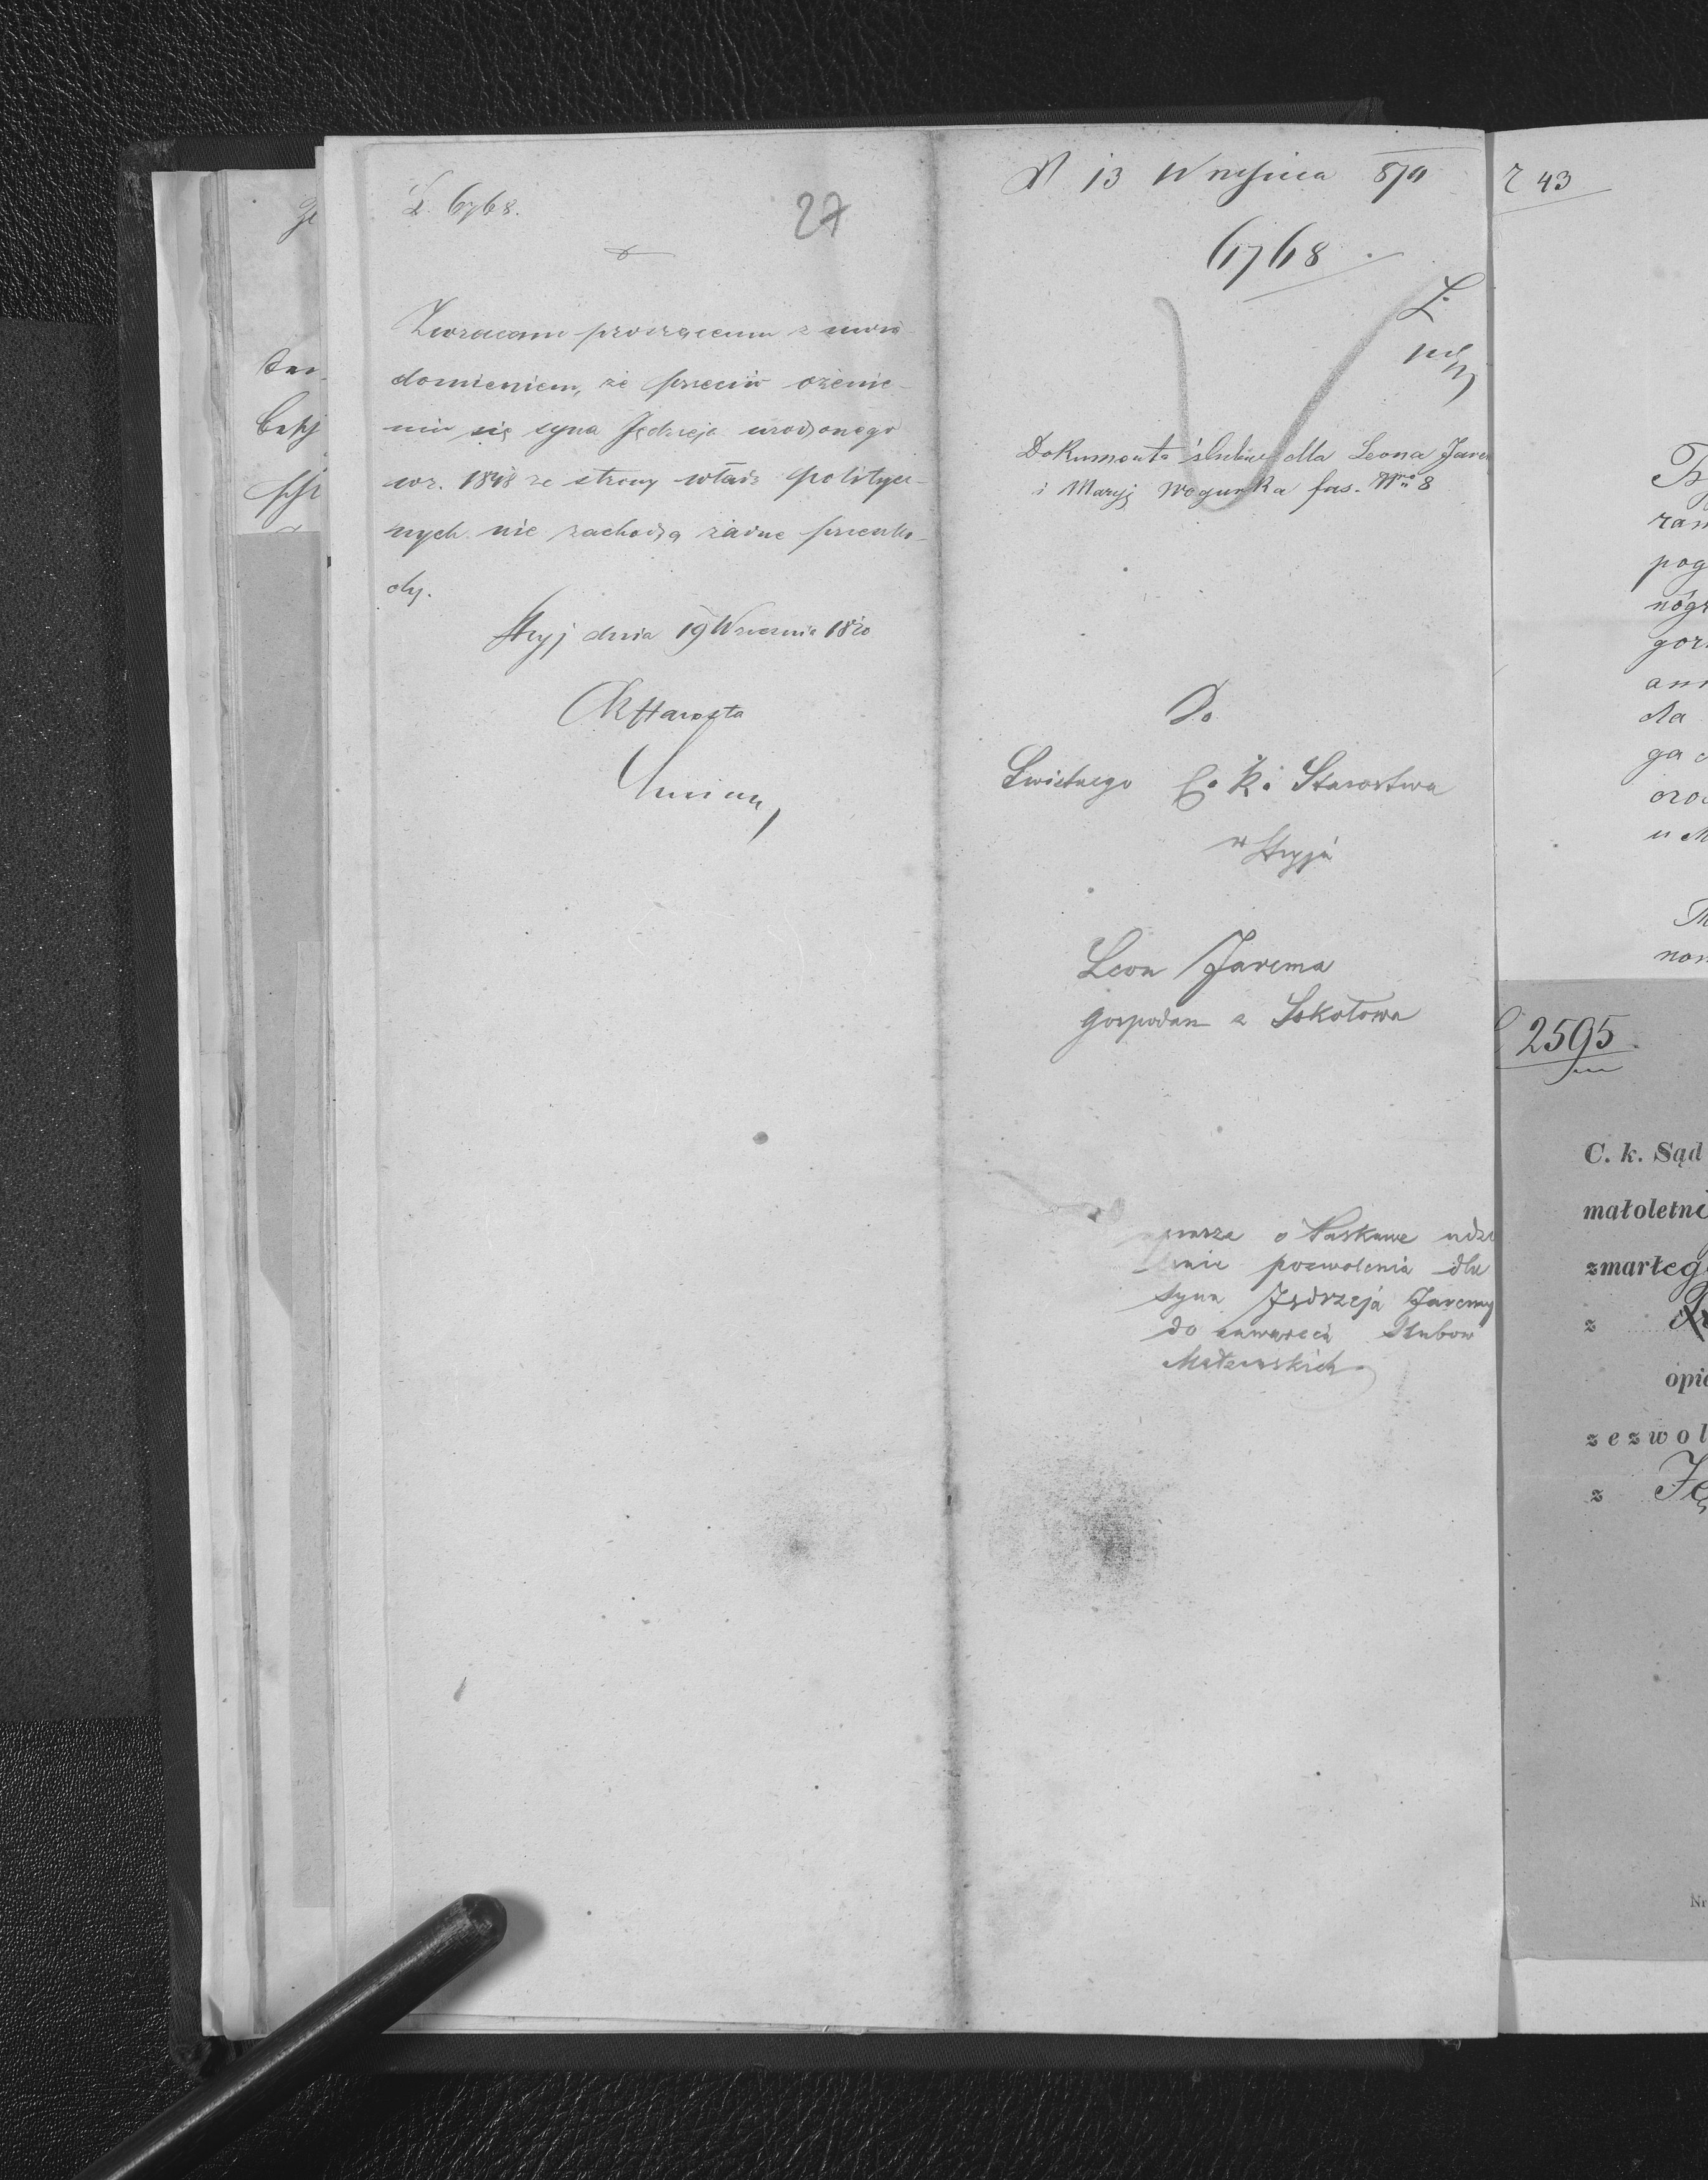 L. 6768.
27
Zwracam proszącemu z uwia
domieniem, że przeciw ożenie-
niu się syna Jędrzeja urodzonego
w r. 1848 ze strony władz politycz-
nych nie zachodzą żadne przeszko-
dy.
Stryj dnia 19 Września 1870
CkStarosta
13 Września 870
6768
Dokumenta ślubne dla Leona Jare
i Maryj fas. 8
Do
Swietnego C. K. Starostwa
w Stryju
Leon Jarema
gospodarz z Sokołowa
o łaskawe udzi
lenie pozwolenia dla
syna Jędrzeja Jaremy
do zawarcia Slubow
Małzenskich
r 43
ran
pog
nógr
gor
ann
dla
ga
u M
non
2595
C. k. Sąd
małoletnie
zmarłego
z
opie
zezwol
z Ję
Nr